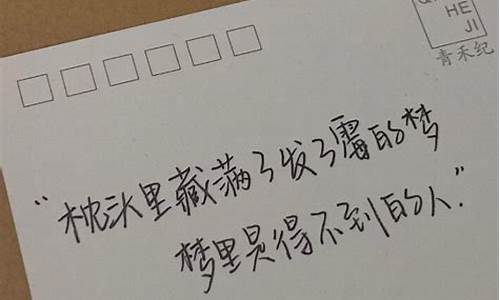 HE
JI
青禾纪
“枕头里藏满了发了霉的梦
梦里是得不到的人.”